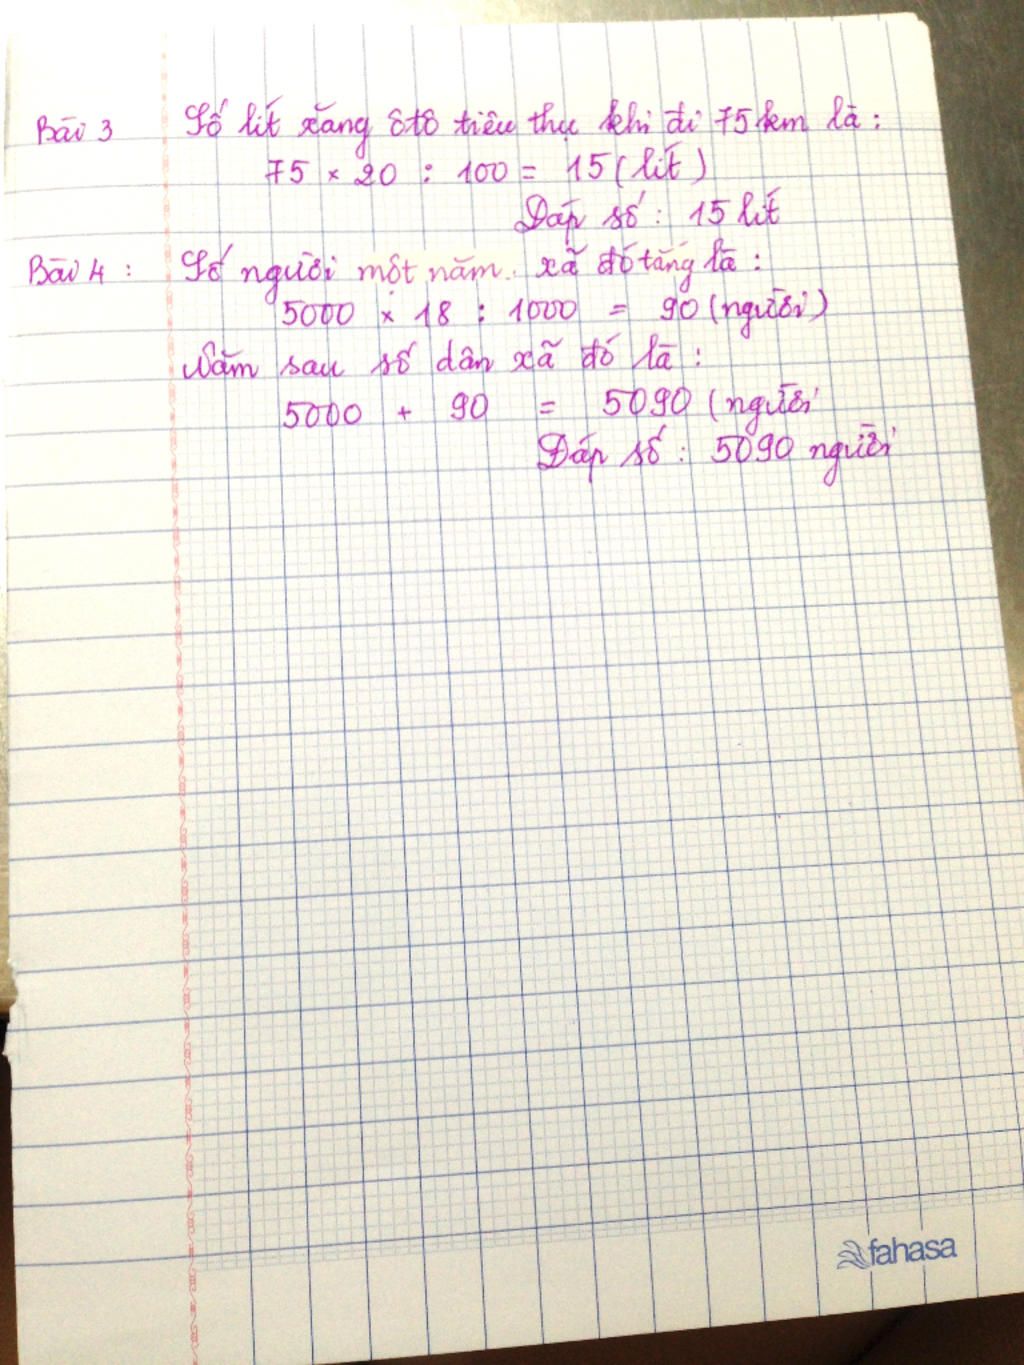 Bài 3 Số lít xăng ôtô tiêu thụ khi đi 75km là :
75 × 20 : 100 = 15 (lít)
Đáp số : 15 lít
Bài 4 : Số người một năm xã đó tăng là :
5000 × 18 : 1000 = 90 (người)
Năm sau số dân xã đó là :
5000 + 90 = 5090 (người
Đáp số : 5090 người
fahasa